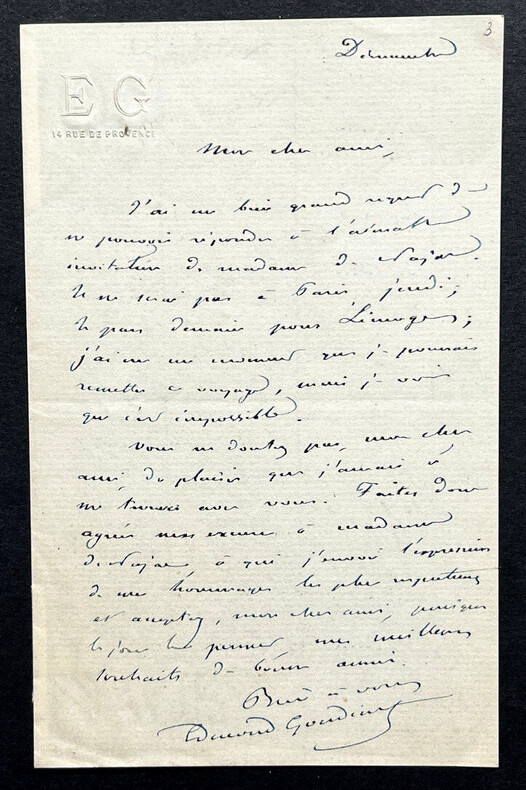 3
EG
14 RUE DE PROVENCE
Mon cher ami,
J'ai un bien grand regret de
ne pouvoir répondre à l'aimable
invitation de madame de Najac.
Je ne serai pas à Paris, jeudi;
Je pars demain pour Limoges;
j'ai cru un moment que je pourrais
remettre ce voyage, mais je vois
que c'est impossible.
Vous ne doutez pas, mon cher
ami, du plaisir que j'aurais à
me trouver avec vous. Faites donc
agréer mes excuses à madame
de Najac, à qui j'envoie l'expression
de mes hommages les plus respectueux
et acceptez, mon cher ami, puisque
le jour le permet, mes meilleurs
souhaits de bonne année.
Bien à vous
Edmond Gondinet